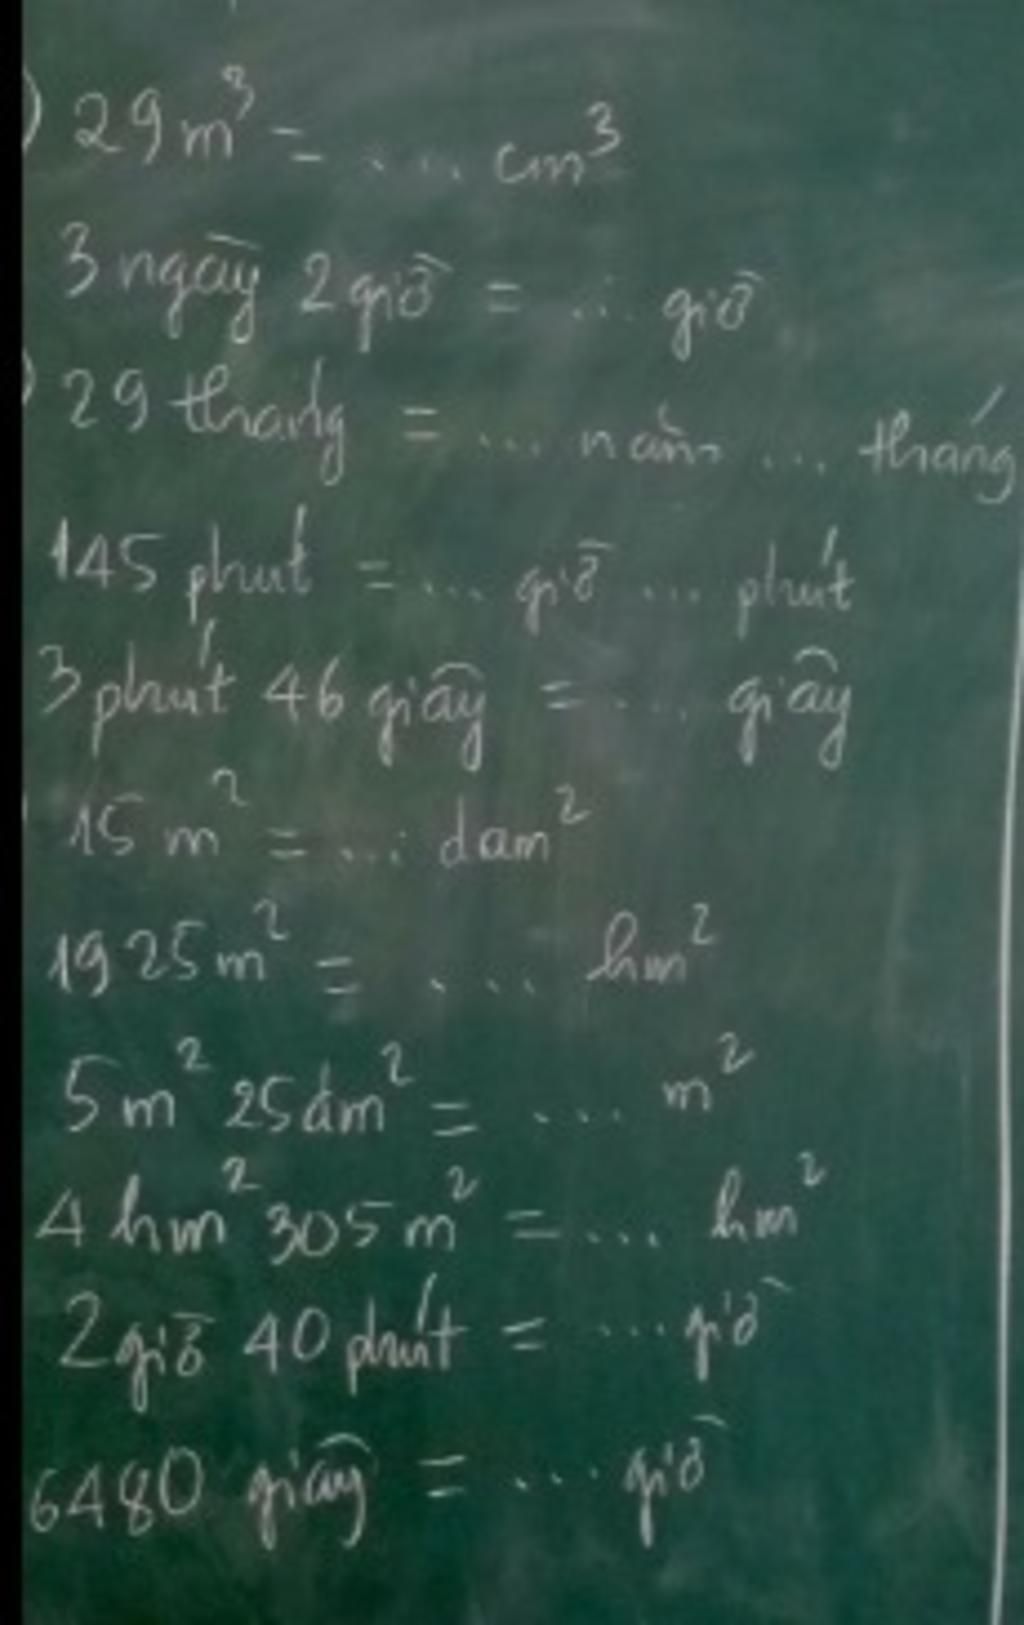 ) 29 m³ = .... cm³
3 ngày 2 giờ = ... giờ
) 29 tháng = ... năm ... tháng
145 phút = ... giờ ... phút
3 phút 46 giây = .... giây
15 m² = ... dam²
1925 m² = .... hm²
5 m² 25 dm² = .... m²
4 hm² 305 m² = ... hm²
2 giờ 40 phút = ... giờ
6480 giây = ... giờ